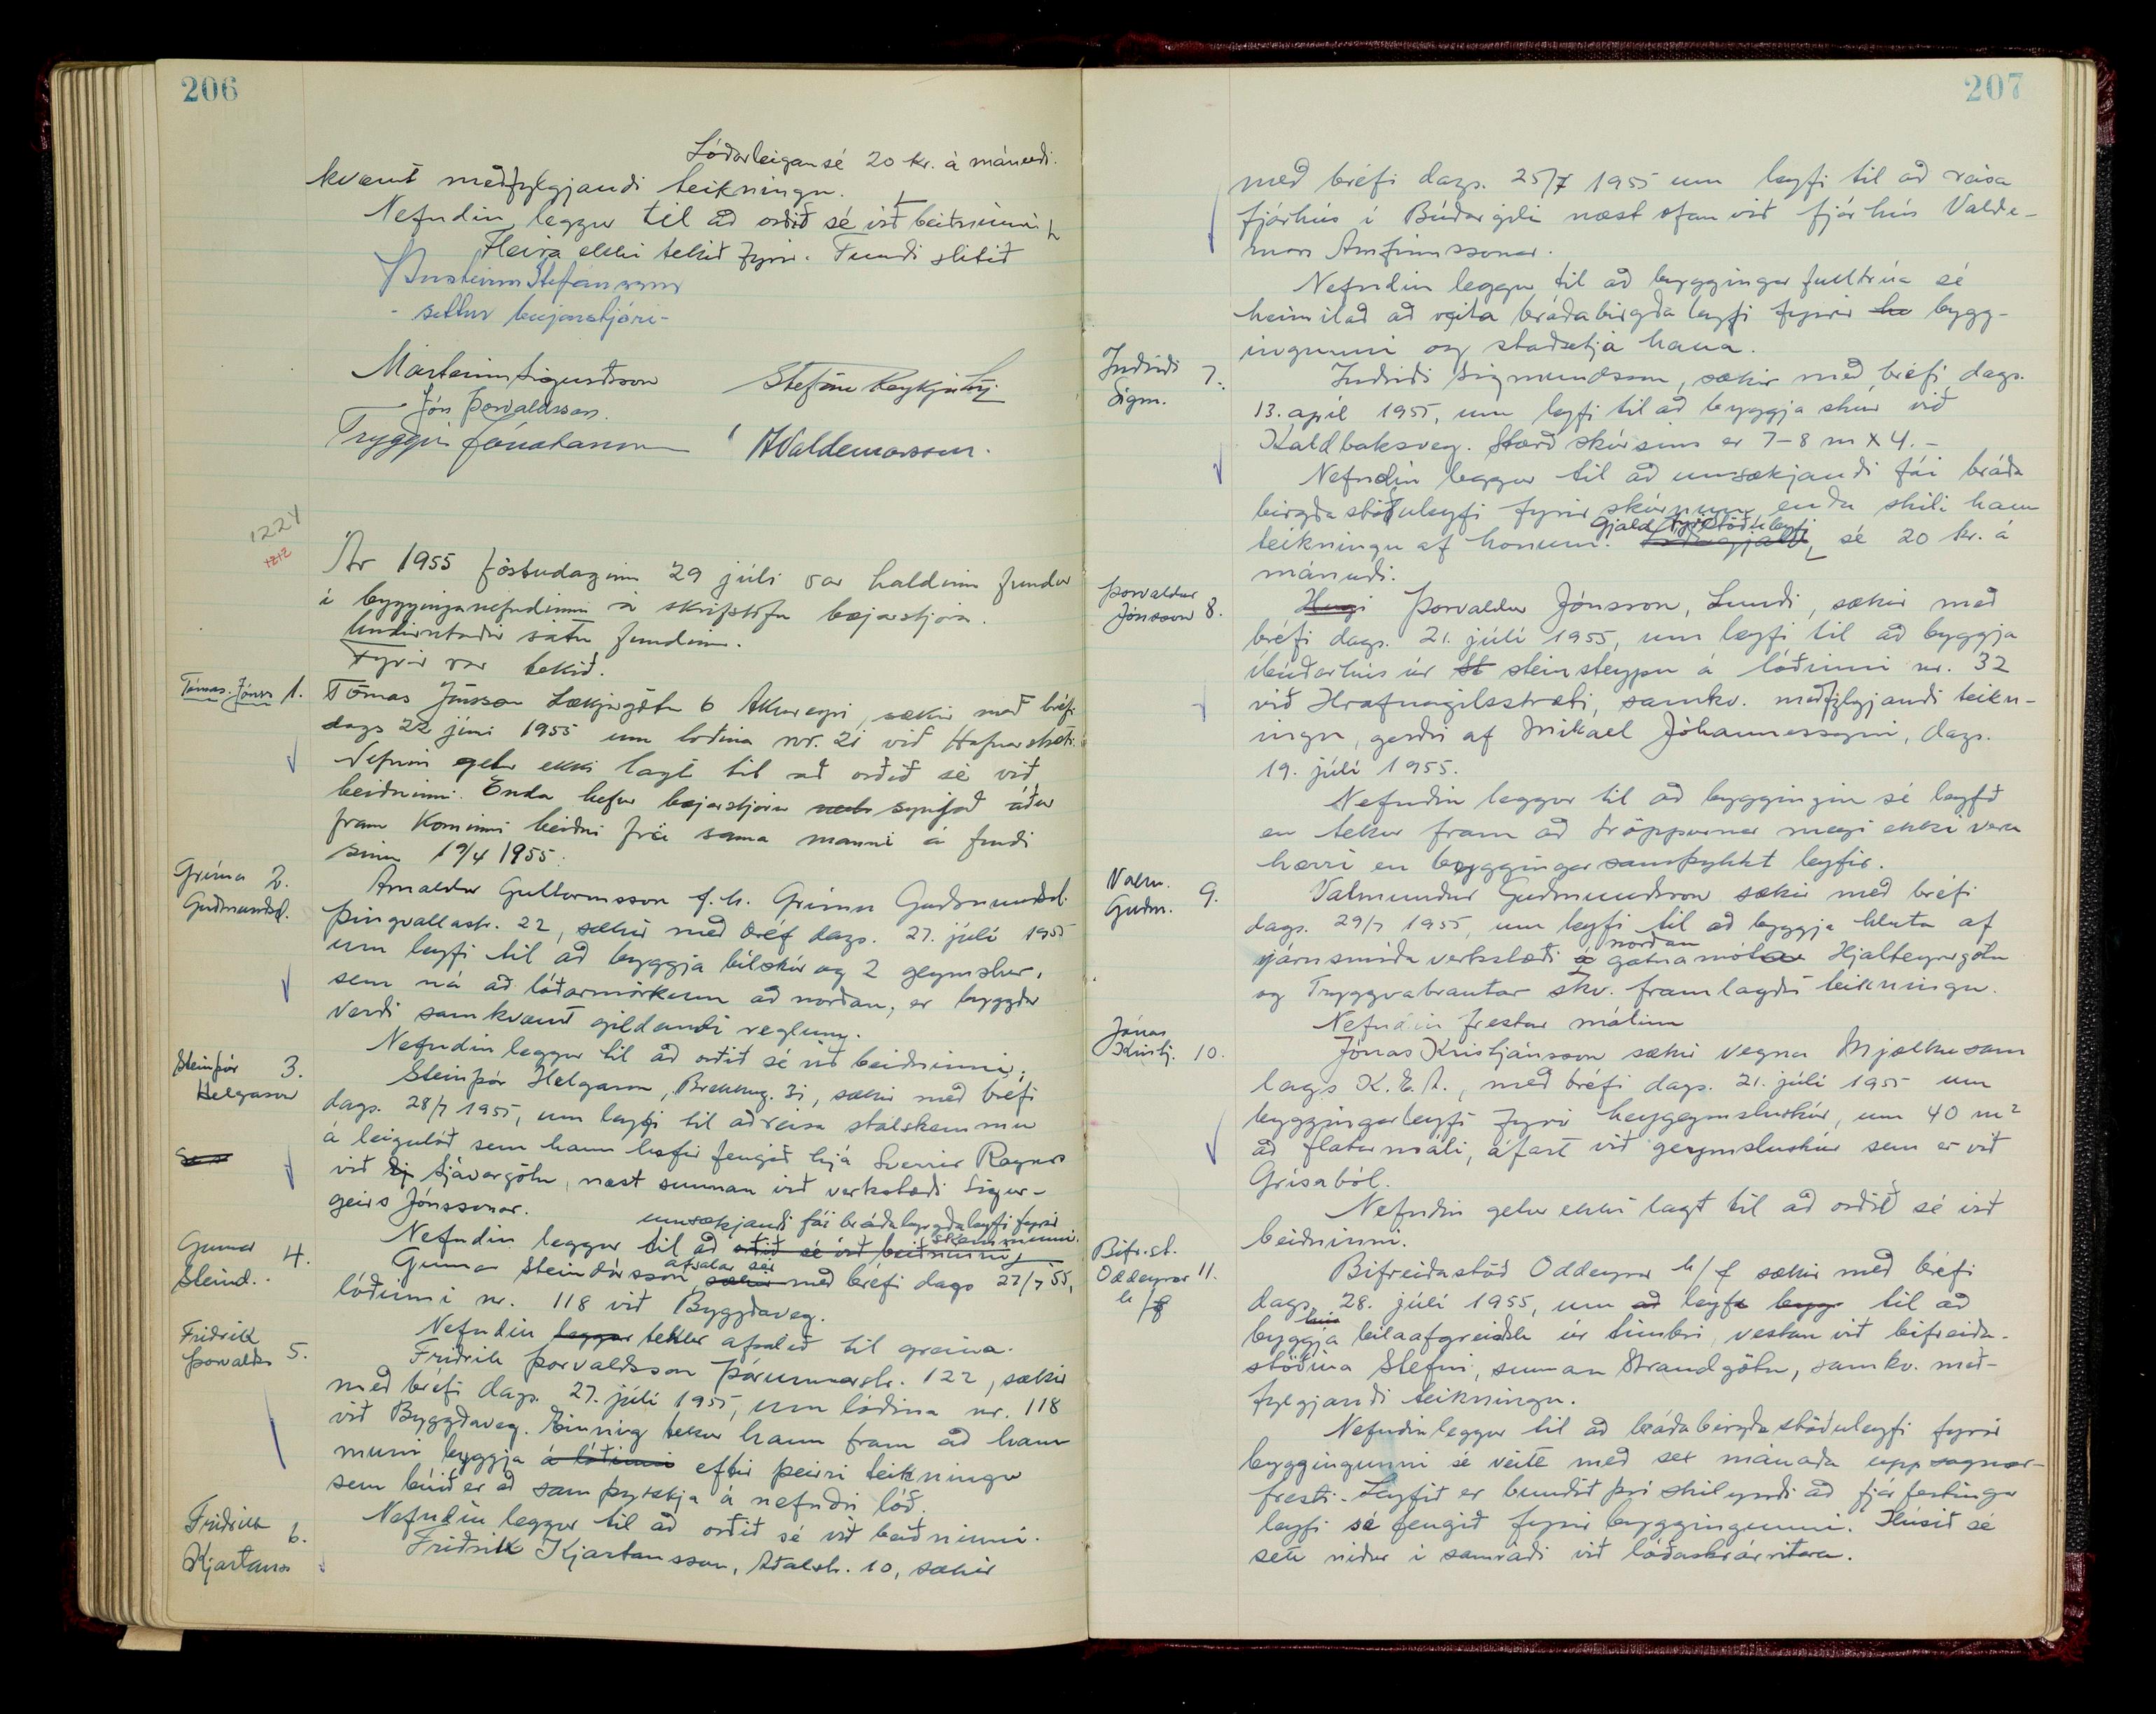 206
Lóðarleigan sé 20 kr. á mánuði.
kvæmt meðfylgjandi teikningu.
Nefndin leggur til að orðið sé við beiðninni
Fleira ekki tekið fyrir. Fundi slitið
Þorsteinn Stefánsson
- settur bæjarstjóri -
Marteinn Sigurðsson
Stefán Reykjalín
Jón Þorvaldsson.
Tryggvi Jónatansson
A Valdemarsson.
1224
1212
Ár 1955 föstudaginn 29 júlí var haldinn fundur
í bygginganefndinni á skrifstofu bæjarstjóra.
Undirritaðir sátu fundinn.
Fyrir var tekið.
Tómas Jónss 1.
Tómas Jónsson Lækjargötu 6 Akureyri, sækir með bréfi
dags 22 júní 1955 um lóðina nr. 21 við Hafnarstræti.
Nefnin getur ekki lagt til að orðið sé við
beiðninni. Enda hefur bæjarstjórn synjað áður
fram kominni beiðni frá sama manni á fundi
sínum 19/4 1955.
Gríma Guðmundsd. 2.
Arnaldur Guttormsson f.h. Grímu Guðmundsd.
Þingvallastr. 22, sækir með bréf dags. 27. júlí 1955
um leyfi til að byggja bílskúr og 2 geymslur,
sem ná að lóðarmörkum að norðan, er byggðar
verði samkvæmt gildandi reglum.
Nefndin leggur til að orðið sé við beiðninni.
Steinþór Helgason 3.
Steinþór Helgason, Brekkug. 31, sækir með bréfi
dags. 28/7 1955, um leyfi til að reisa stálskemmu
á leigulóð sem hann hefir fengið hjá Sverrir Ragnars
við Sj Sjávargötu, næst sunnan við verkstæði Sigur-
geirs Jónssonar.
umsækjandi fái bráðabyrgðaleyfi fyrir
skemmunni.
Nefndin leggur til að orðið sé við beiðninni
Gunnar Steind. 4.
afsalar sér
Gunnar Steindórsson sækir með bréfi dags 27/7 55,
lóðinni nr. 118 við Byggðaveg.
Nefndin leggur tekur afsalið til greina.
Friðrik Þorvalds 5.
Friðrik Þorvaldsson Þórunnarstr. 122, sækir
með bréfi dags. 27. júlí 1955, um lóðina nr. 118
við Byggðaveg. Einnig tekur hann fram að hann
muni byggja á lóðinni eftir þeirri teikningu
sem búið er að samþykkja á nefndri lóð.
Nefndin leggur til að orðið sé við beiðninni.
Friðrik Kjartanss 6.
Friðrik Kjartansson, Aðalstr. 10, sækir
207
með bréfi dags. 25/7 1955 um leyfi til að reisa
fjárhús í Búðargili næst ofan við fjárhús Valde-
mars Arnfinnssonar.
Nefndin leggur til að byggingarfulltrúa sé
heimilað að veita bráðabirgða leyfi fyrir he bygg-
ingunni og staðsetja hana.
Indriði Sigm. 7.
Indriði Sigmundsson, sækir með bréfi dags.
13. apríl 1955, um leyfi til að byggja skúr við
Kaldbaksveg. Stærð skúrsins er 7-8 m x 4. -
Nefndin leggur til að umsækjandi fái bráða
birgðastöðuleyfi fyrir skúrnum enda skili hann
Gjald fyrir stöðuleyfi
teikningu af honum. sé 20 kr. á
mánuði.
Þorvaldur Jónsson 8.
Hugi Þorvaldur Jónsson, Lundi, sækir með
bréfi dags. 21. júlí 1955, um leyfi til að byggja
íbúðarhús úr St steinsteypu á lóðinni nr. 32
við Hrafnagilsstræti, samkv. meðfylgjandi teikn-
ingu, gerðri af Mikael Jóhannessyni, dags.
19. júlí 1955.
Nefndin leggur til að byggingin sé leyfð
en tekur fram að tröppurnar megi ekki vera
hærri en byggingarsamþykkt leyfir.
Valm. Guðm. 9.
Valmundur Guðmundsson sækir með bréfi
dags. 29/7 1955, um leyfi til að byggja hluta af
norðan
járnsmíðaverkstæði á gatnamótar Hjalteyrargötu
og Tryggvabrautar skv. framlagðri teikningu.
Nefndin frestar málinu
Jónas Kristj. 10.
Jónas Kristjánsson sækir vegna Mjólkursam
lags K.E.A., með bréfi dags. 21. júlí 1955 um
byggingarleyfi fyrir heygeymsluskúr, um 40 m²
að flatarmáli, áfast við geymsluskúr sem er við
Grísaból.
Nefndin getur ekki lagt til að orðið sé við
beiðninni.
Bifr.st. Oddeyrar h/f 11.
Bifreiðastöð Oddeyrar h/f sækir með bréfi
dags. 28. júlí 1955, um að leyfi bygg- til að
byggja bílaafgreiðslu úr timbri, vestan við bifreiða-
stöðina Stefni, sunnan Strandgötu, samkv. með-
fylgjandi teikningu.
Nefndin leggur til að bráðabirgðastöðuleyfi fyrir
byggingunni sé veitt með sex mánaða uppsagnar-
fresti. Leyfið er bundið því skilyrði að fjárfestingar
leyfi sé fengið fyrir byggingunni. Húsið sé
sett niður í samráði við lóðaskrárritara.